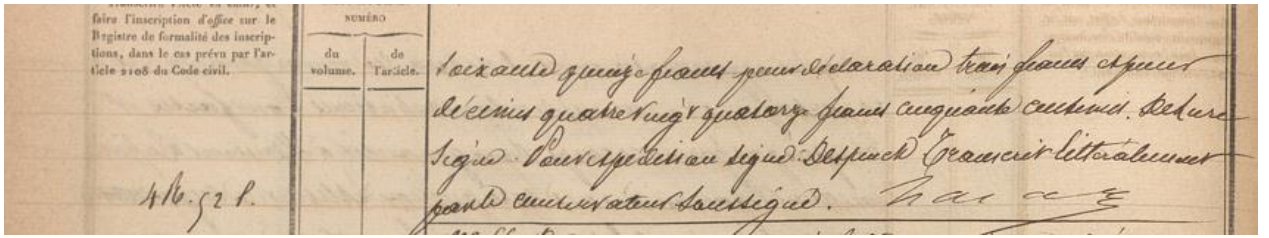 faire l'inscription d'office sur le
Registre de formalité des inscrip-
tions, dans le cas prévu par l'ar-
ticle 2108 du Code civil.
NUMÉRO
du volume.
de l'article.
Soixante quinze francs pour déclaration trois francs et pour
décimes quatre vingt quatorze francs cinquante centimes.
Signé. Pour expédition signé: Transcrit littéralement
par le conservateur soussigné.
4 R. 52 S.